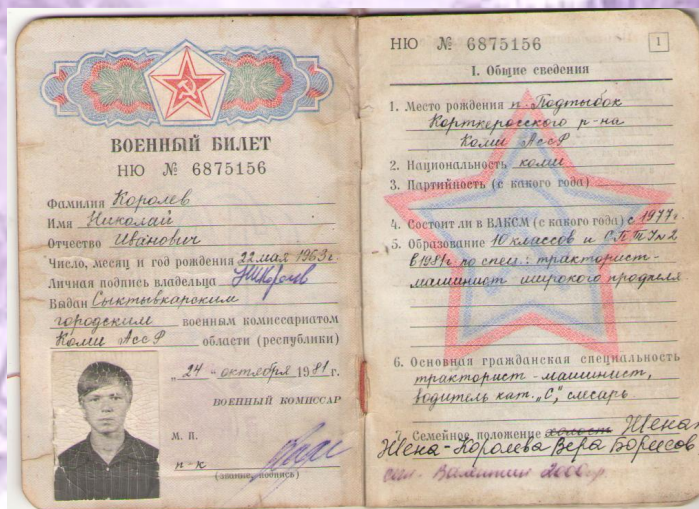 ВОЕННЫЙ БИЛЕТ
НЮ № 6875156
Фамилия Королев
Имя Николай
Отчество Иванович
Число, месяц и год рождения 22 мая 1963 г.
Личная подпись владельца
Выдан Сыктывкарским
городским военным комиссариатом
Коми АССР области (республики)
„24“ октября 1981 г.
ВОЕННЫЙ КОМИССАР
М. П.
п-к
(звание, подпись)
НЮ № 6875156
1
I. Общие сведения
1. Место рождения п. Подтыбок
Корткеросского р-на
Коми АССР
2. Национальность коми
3. Партийность (с какого года)
4. Состоит ли в ВЛКСМ (с какого года) с 1977 г.
5. Образование 10 классов и СПТУ №2
в 1981г по спец.: тракторист-
машинист широкого профиля
6. Основная гражданская специальность
тракторист-машинист,
водитель кат. „С“, слесарь
7. Семейное положение холост Женат
Жена-Королева Вера Борисов
сын- Валентин 2000г.р.